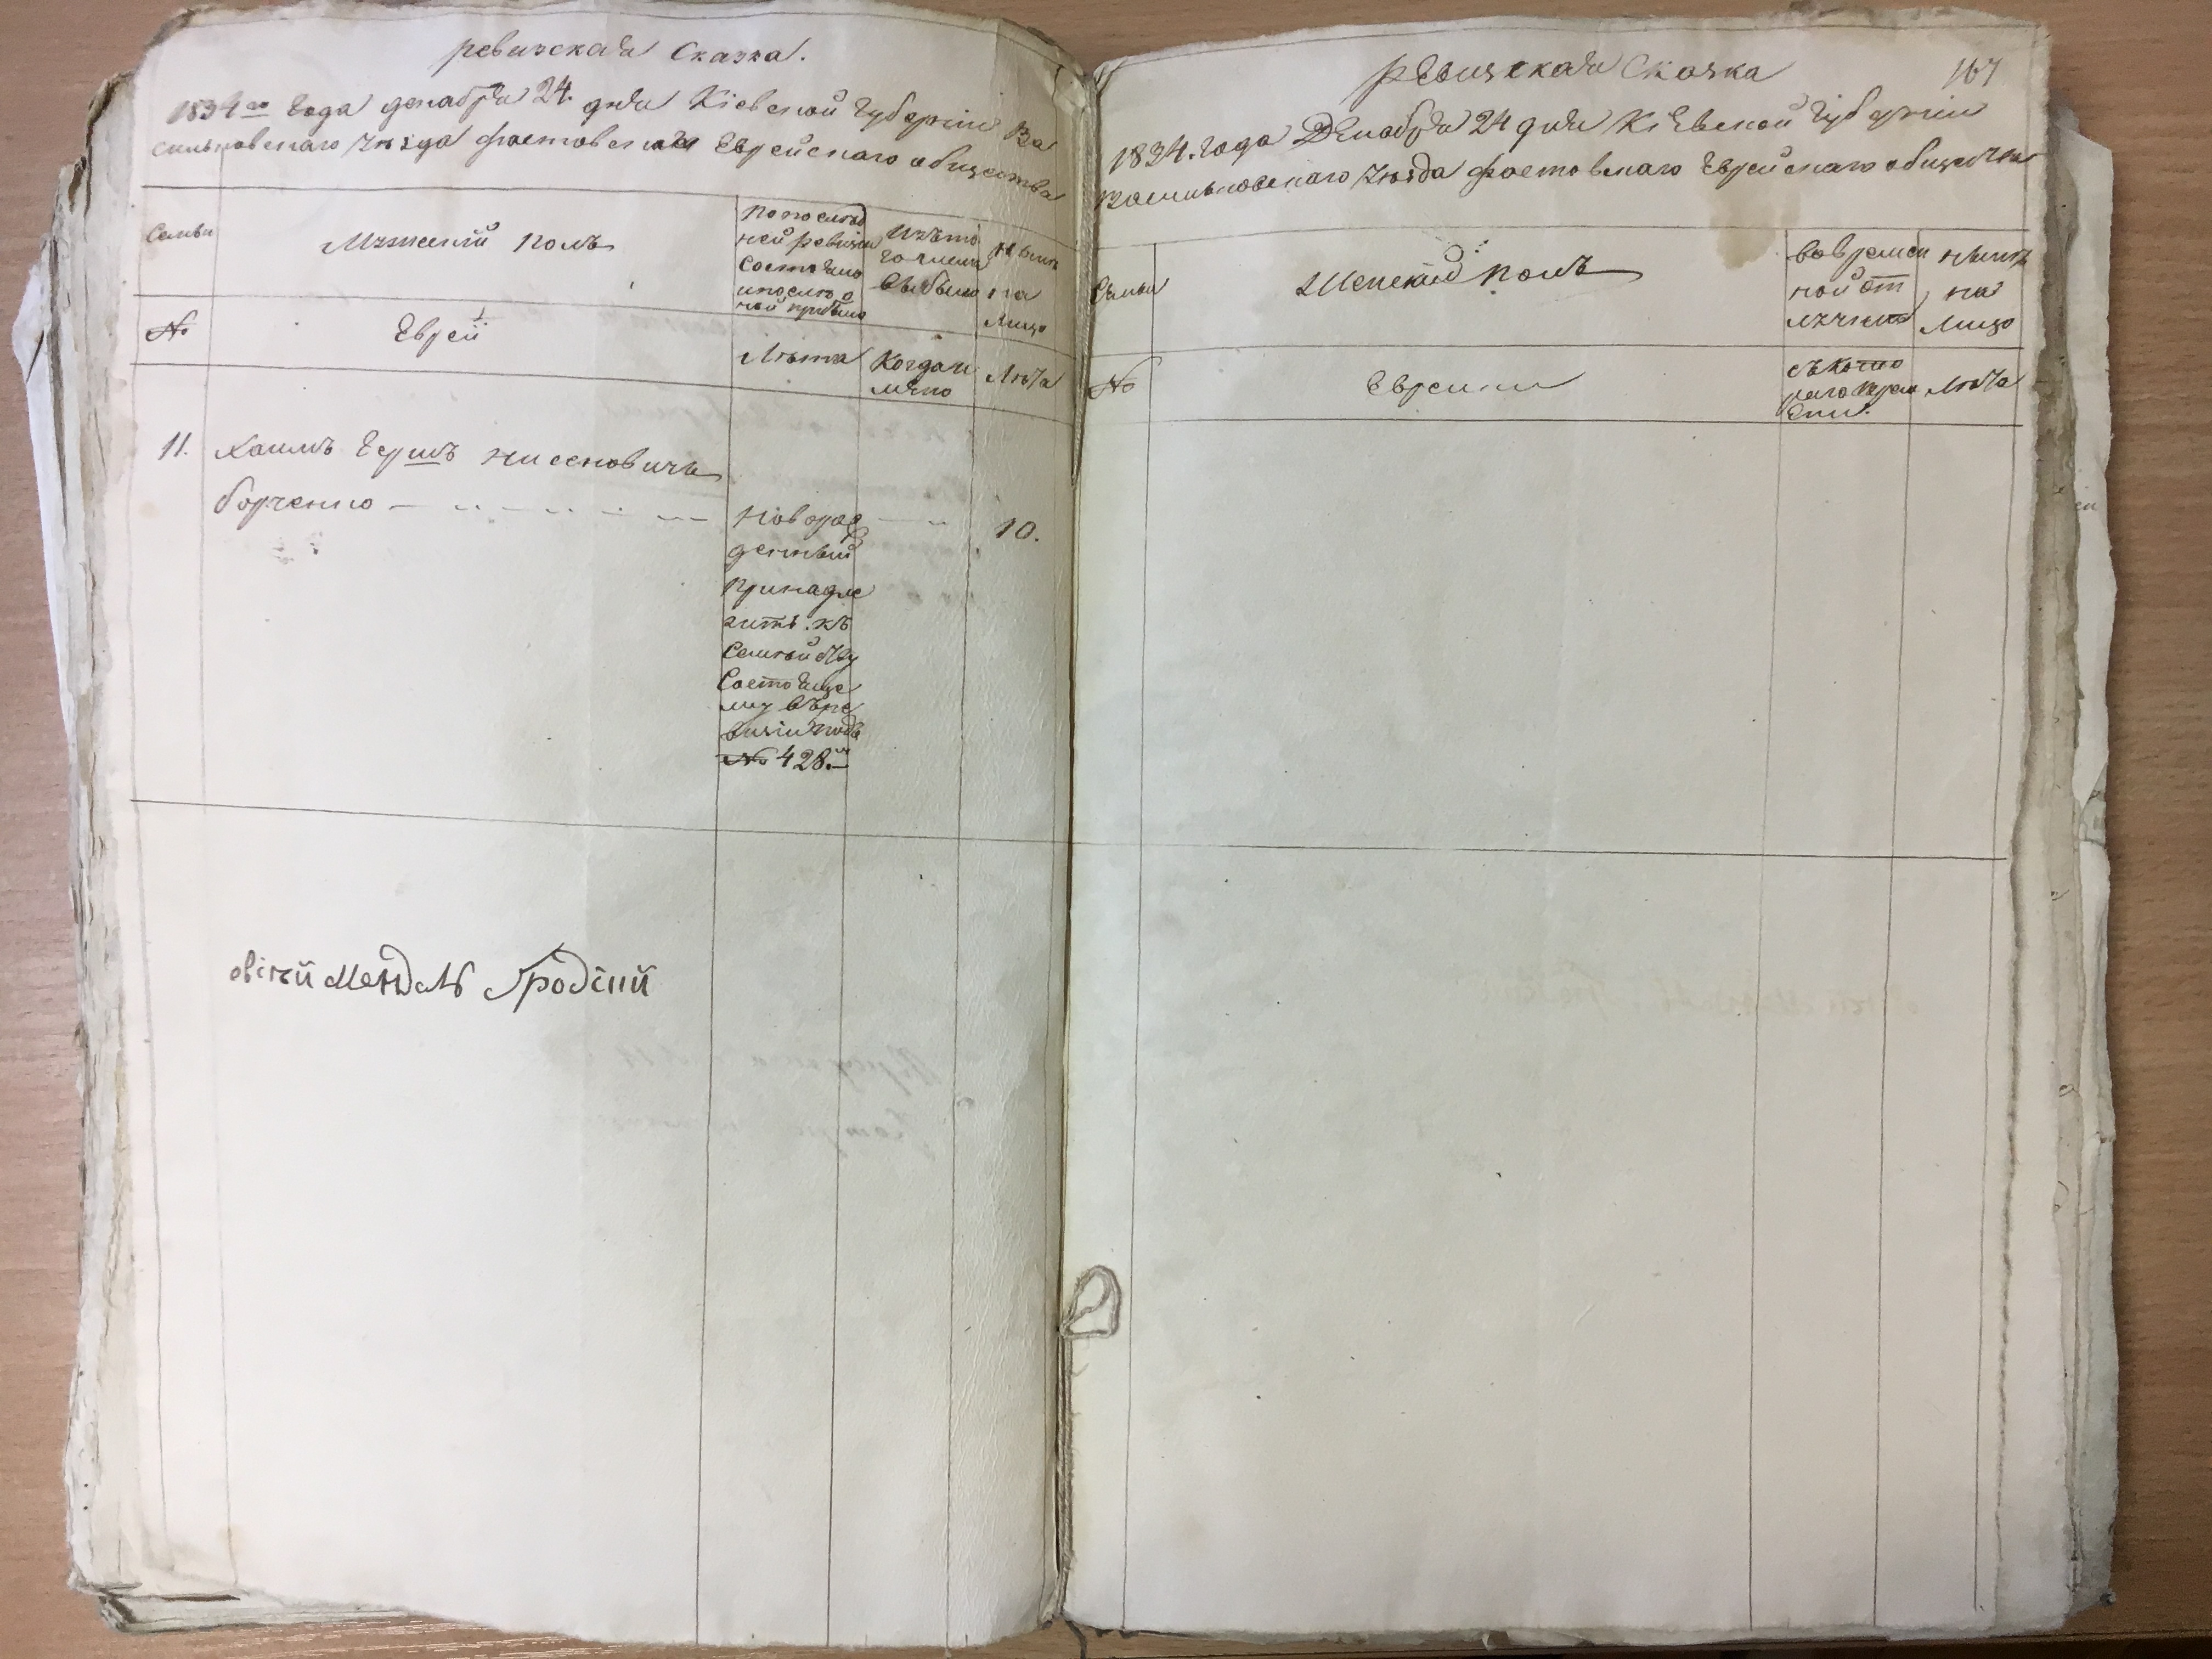 ревизская Сказка.
1834го года декабря 24. дня Кіевской Губерніи Ва
сильковскаго уѣзда фастовскаго Еврейскаго общества
Семьи
Мужескій полъ
По послѣд
ней ревизіи
состояло
и послѣ о
ной прибыло
Изъ то
го числа
Выбыло
Нынѣ
на
лицо
№
Евреи
Лѣта
Когда и
мѣно
Лѣта
11. Хаимъ Гершъ Нисеновичъ
борченко
Новорож
денный
Принадле
житъ къ
Семьи
Состояще
му въ ре
визіи подъ
№ 428.
10.
Мендель Гродскій
ревизская Сказка
167
1834. года Декабря 24 дня Кіевской Губерніи
Васильковскаго уѣзда фастовскаго Еврейскаго общества
Семьи
Женскій полъ
Во времен
ной от
лучкѣ
Нынѣ
на
лицо
№
Еврейки
съ кото
раго врем
ени.
Лѣта